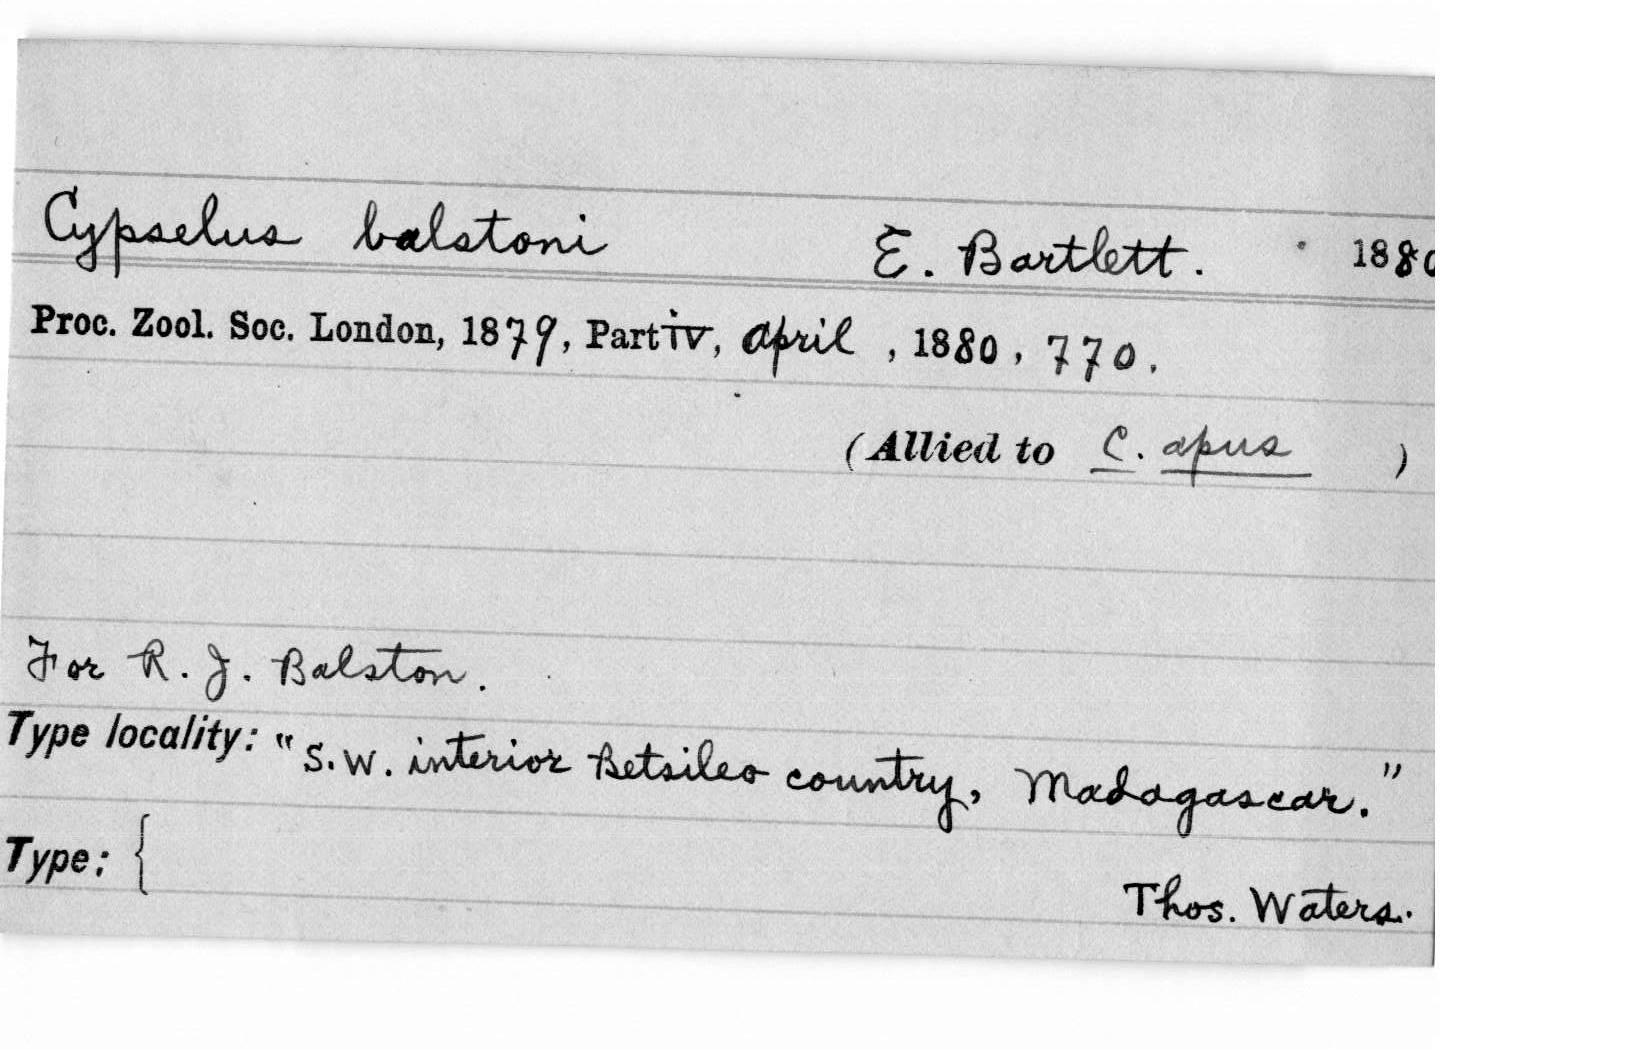 Cypselus balstoni E. Bartlett. 1880
Proc. Zool. Soc. London, 1879, Part iv, April, 1880, 770.
(Allied to C. apus)
For R. J. Balston.
Type locality: "S.W. interior Betsileo country, Madagascar."
Type: {
Thos. Waters.